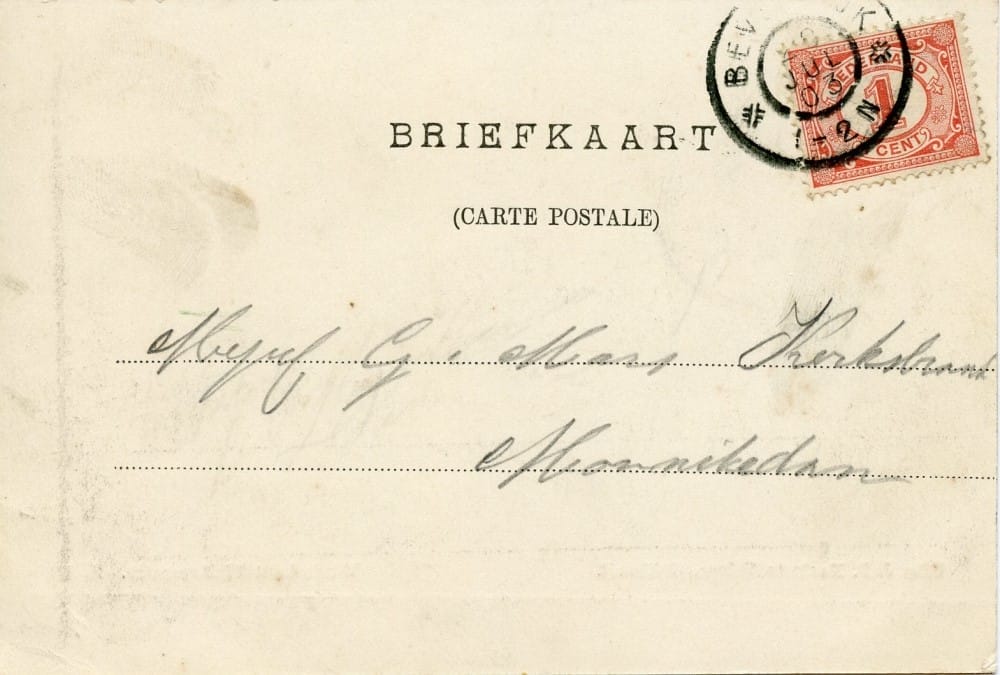 BEV K
8
JUL
03
1-2N
NEDERLAND
1
CENT
BRIEFKAART
(CARTE POSTALE)
Mejuf G Mars Kerkstraat
Monnikedam